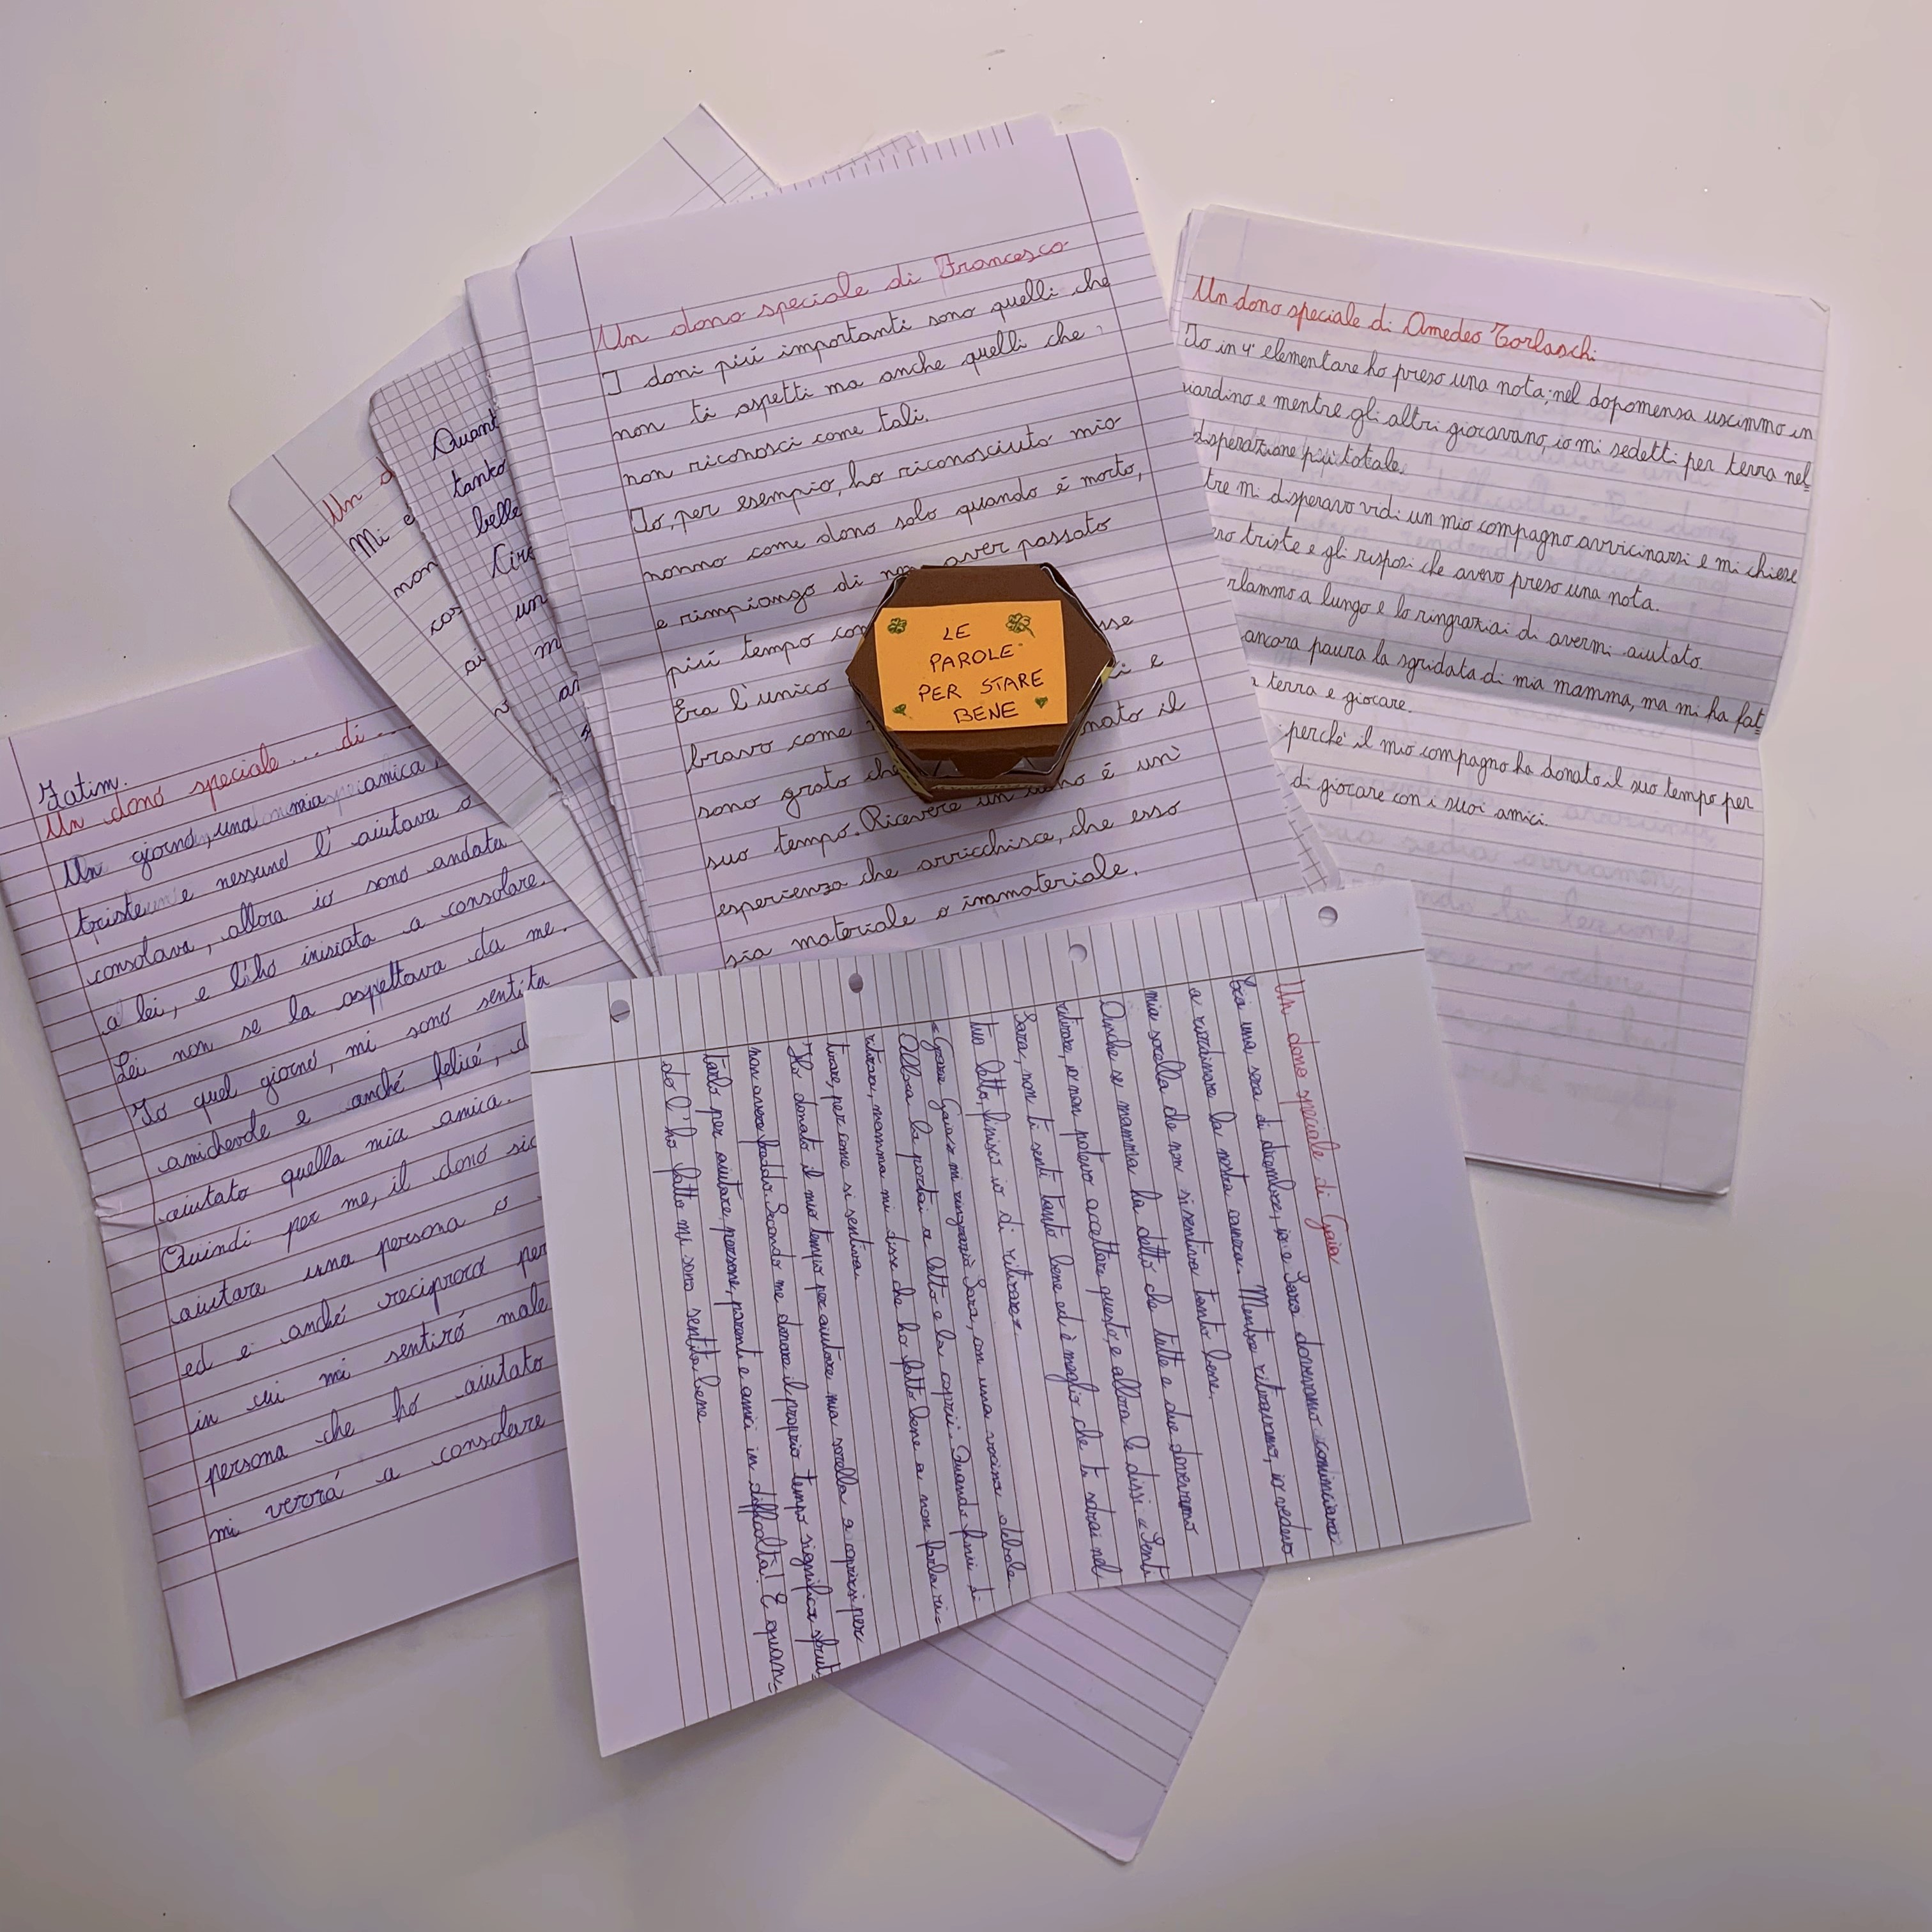 Un dono speciale di Francesco
I doni più importanti sono quelli che
non ti aspetti ma anche quelli che
non riconosci come tali.
Io, per esempio, ho riconosciuto mio
nonno come dono solo quando é morto,
e rimpiango di aver passato
piú tempo
Era l'unico e
bravo come
sono grato il
suo tempo. Ricevere un é un'
esperienza che arricchisce, che esso
sia materiale o immateriale.
LE
PAROLE
PER STARE
BENE
Un dono speciale di Amedeo Torlaschi
Io in 4ª elementare ho preso una nota; nel dopomensa uscimmo in
giardino e mentre gli altri giocavano, io mi sedetti per terra nel=
disperazione più totale.
tre mi disperavo vidi un mio compagno avvicinarsi e mi chiese
ero triste e gli risposi che avevo preso una nota.
rlammo a lungo e lo ringraziai di avermi aiutato.
ancora paura la sgridata di mia mamma, ma mi ha fat=
terra e giocare.
perchè il mio compagno ha donato il suo tempo per
di giocare con i suoi amici.
Un d
Mi e
non
cos
ai
Quant
tanto
belle
Circ
un
m
an
Fatim.
Un dono speciale... di...
Un giorno, una mia amica,
triste e nessuno l'aiutava o
consolava, allora io sono andata
a lei, e l'ho inisiata a consolare.
Lei non se la aspettava da me.
Io quel giorno, mi sono sentita
amichevole e anché felicé, d
aiutato quella mia amica.
Quindi per me, il dono sia
aiutare una persona o
ed e anché reciproco per
in cui mi sentiró male
persona che hó aiutato
mi verrá a consolare
Un dono speciale di Gaia
Era una sera di dicembre, io e Sara dovevamo cominciare
a riordinare la nostra camera. Mentre ritiravamo, io vedevo
mia sorella che non si sentiva tanto bene.
Anche se mamma ha detto che tutte e due dovevamo
ritirare, io non potevo accettare questo, e allora le dissi: «Senti
Sara, non ti senti tanto bene ed è meglio che tu stai nel
tuo letto, finisco io di ritirare».
«Grazie Gaia» mi ringraziò Sara, con una vocina debole.
Allora la portai a letto e la coprii. Quando finii di
ritirare, mamma mi disse che ho fatto bene a non farla ri=
tirare, per come si sentiva.
Hó donato il mio tempo per aiutare mia sorella a coprirsi per
non avere freddo. Secondo me donare il proprio tempo significa sfrut=
tarlo per aiutare, persone, parenti e amici in difficoltà! E quan=
do l'ho fatto mi sono sentita bene